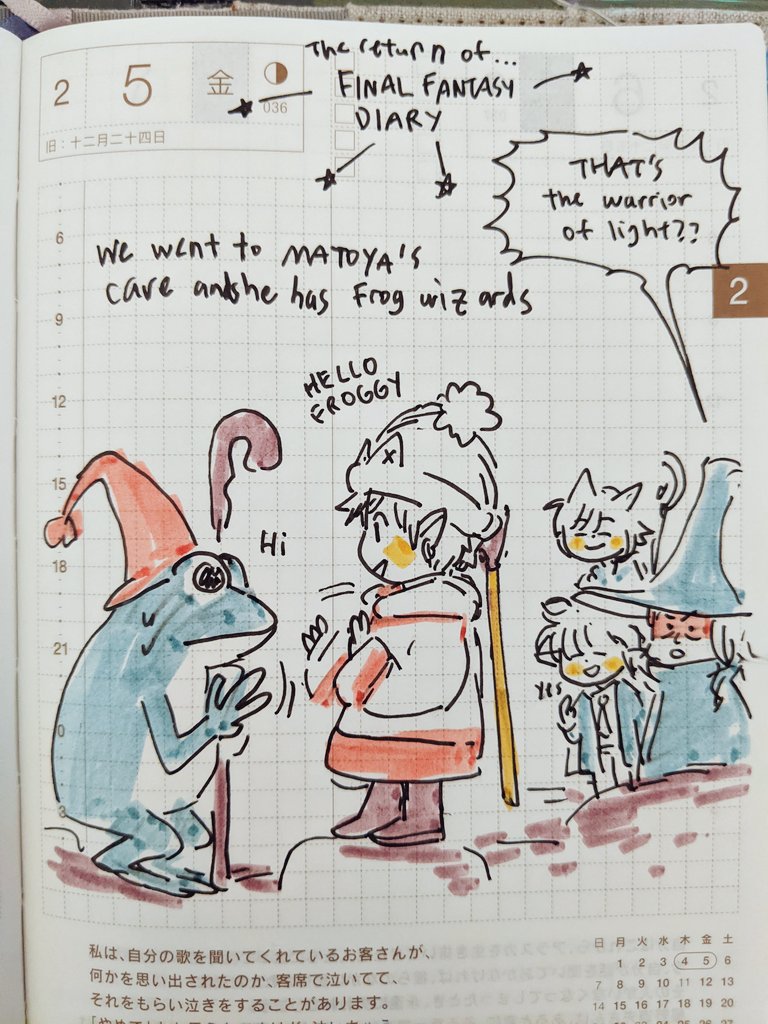 The return of...
FINAL FANTASY
DIARY
2 5 金
036
旧：十二月二十四日
THAT'S
the warrior
of light??
we went to MATOYA'S
cave and she has frog wizards
2
HELLO
FROGGY
Hi
Yes
6
9
12
15
18
21
0
3
私は、自分の歌を聞いてくれているお客さんが、
何かを思い出されたのか、客席で泣いてて、
それをもらい泣きをすることがあります。
日 月 火 水 木 金 土
1 2 3 4 5 6
7 8 9 10 11 12 13
14 15 16 17 18 19 20